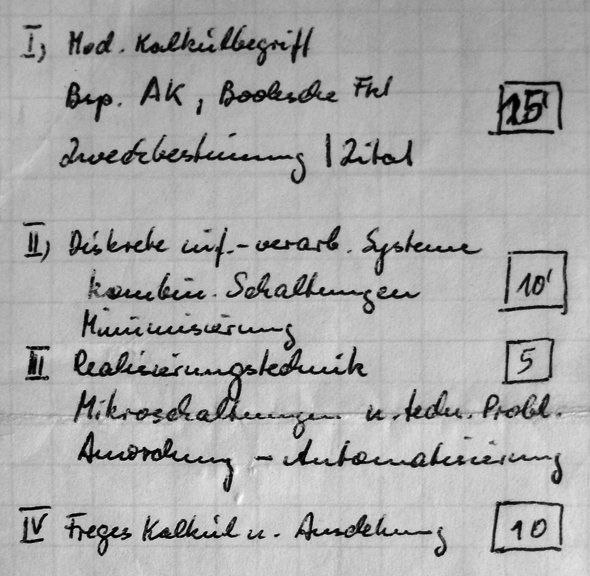 I) Mod. Kalkülbegriff
Bsp. AK, Boolesche Fkt
15'
Zweckbestimmung | Zitat
II) Diskrete inf.-verarb. Systeme
kombin. Schaltungen
10'
Minimisierung
III Realisierungstechnik
5
Mikroschaltungen u. techn. Probl.
Anordnung - Automatisierung
IV Freges Kalkül u. Ausdehnung
10